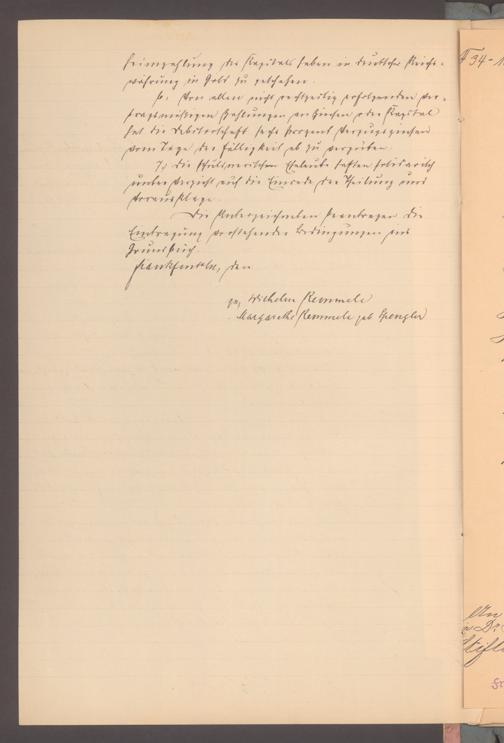 heimzahlung des Kapitals haben in deutscher Reichs-
währung in Gold zu geschehen.
6. Von allen nicht rechtzeitig erfolgenden ver-
tragsmäßigen Zahlungen an Zinsen oder Kapital
hat die Debitorschaft sechs Prozent Verzugszinsen
vom Tage der Fälligkeit ab zu vergüten.
7. die Schuldnerischen Eheleute haften solidarisch
unter Verzicht auf die Einrede der Theilung und
Vorausklage.
Die Unterzeichneten beantragen die
Eintragung vorstehender Bedingungen ins
Grundbuch.
Frankfurt a/M, den
gez. Wilhelm Remmele
Margarethe Remmele geb Spengler
34-
An
Stift